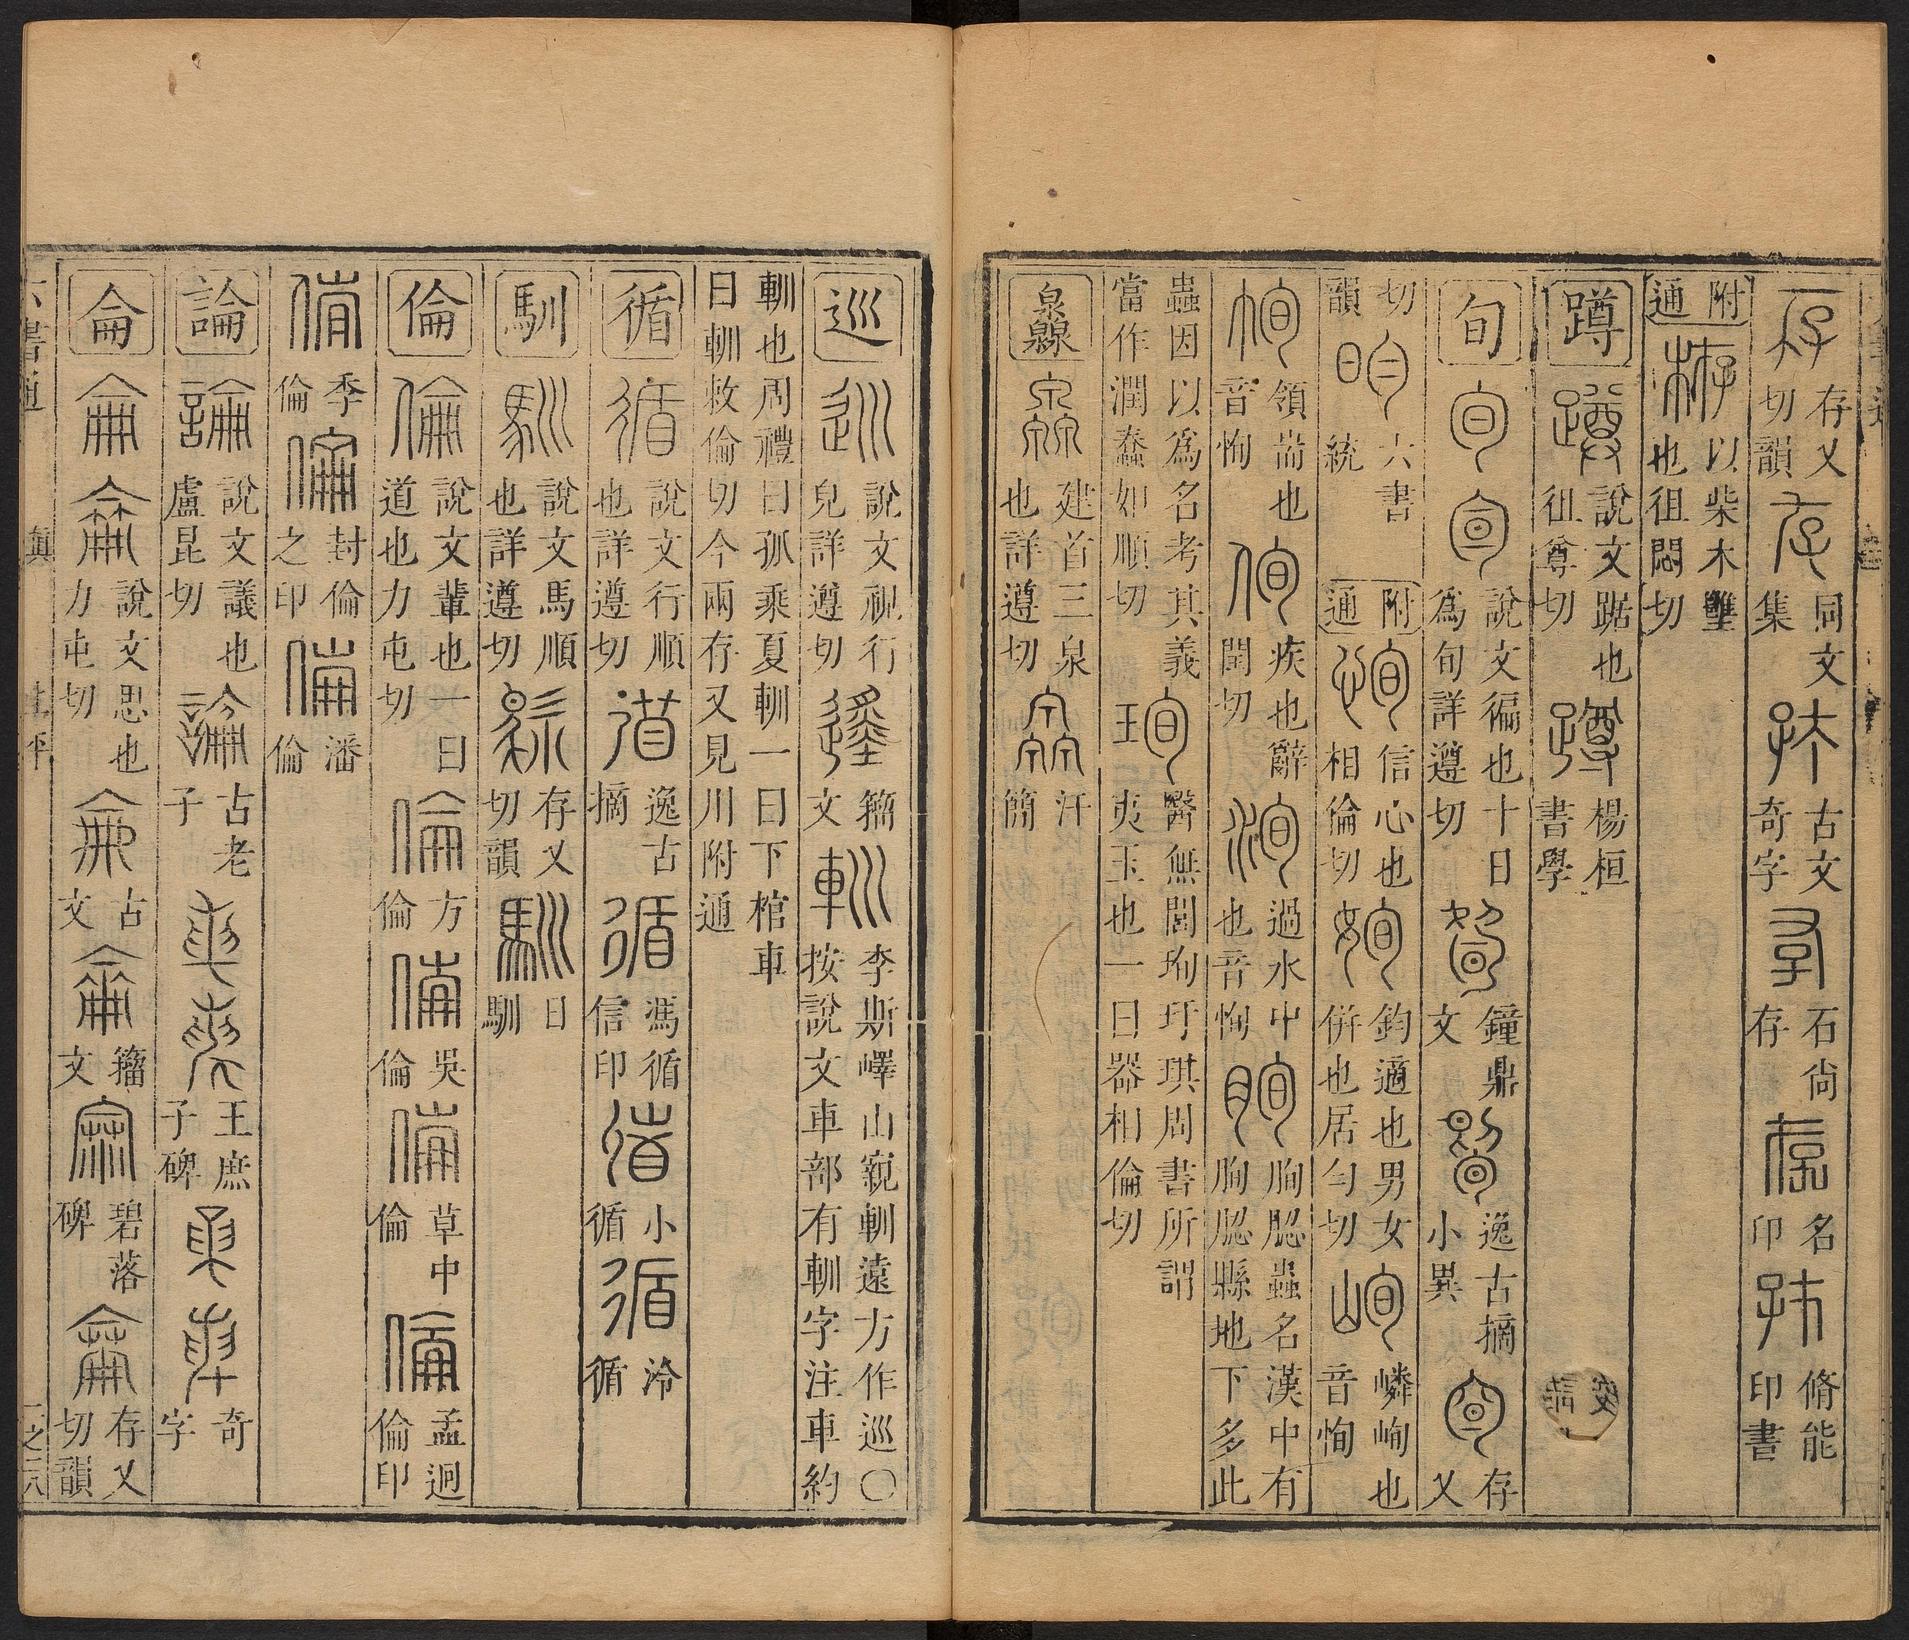 存乂切韻 同文集 古文奇字 石尙存 名印 脩能印書
附通 以柴木𨻰也徂悶切
蹲 說文踞也徂尊切 楊桓書學
旬 說文徧也十日爲旬詳遵切 鐘鼎文 逸古摘小異 存乂
切韻 六書統 附通 信心也相倫切 鈞適也男女併也居勻切 嶙峋也音恂
領耑也音恂 疾也辭閏切 過水中也音恂 朐䏰蟲名漢中有朐䏰縣地下多此
蟲因以爲名考其義當作潤蠢如順切 醫無閭珣玗琪周書所謂夷玉也一曰器相倫切
灥 建首三泉也詳遵切 汗簡
巡 說文視行皃詳遵切 籀文 李斯嶧山親軔遠方作巡〇按說文車部有軔字注車約
軔也周禮曰孤乘夏軔一曰下棺車曰軔敕倫切今兩存又見川附通
循 說文行順也詳遵切 逸古摘 馮循信印 小循 泠循
馴 說文馬順也詳遵切 存乂切韻 日馴
倫 說文輩也一曰道也力屯切 方倫 吳倫 草中倫 孟迥倫印
季倫 封倫之印 潘倫
論 說文議也盧昆切 古老子 王庶子碑 奇字
侖 說文思也力屯切 古文 籀文 碧落碑 存乂切韻
六書通 眞 上平 二之二八